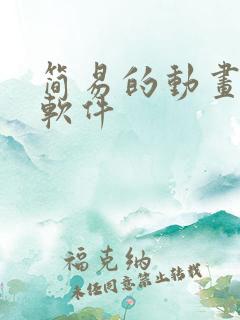 简易的動畫
軟件
福克纳
未经同意禁止转载